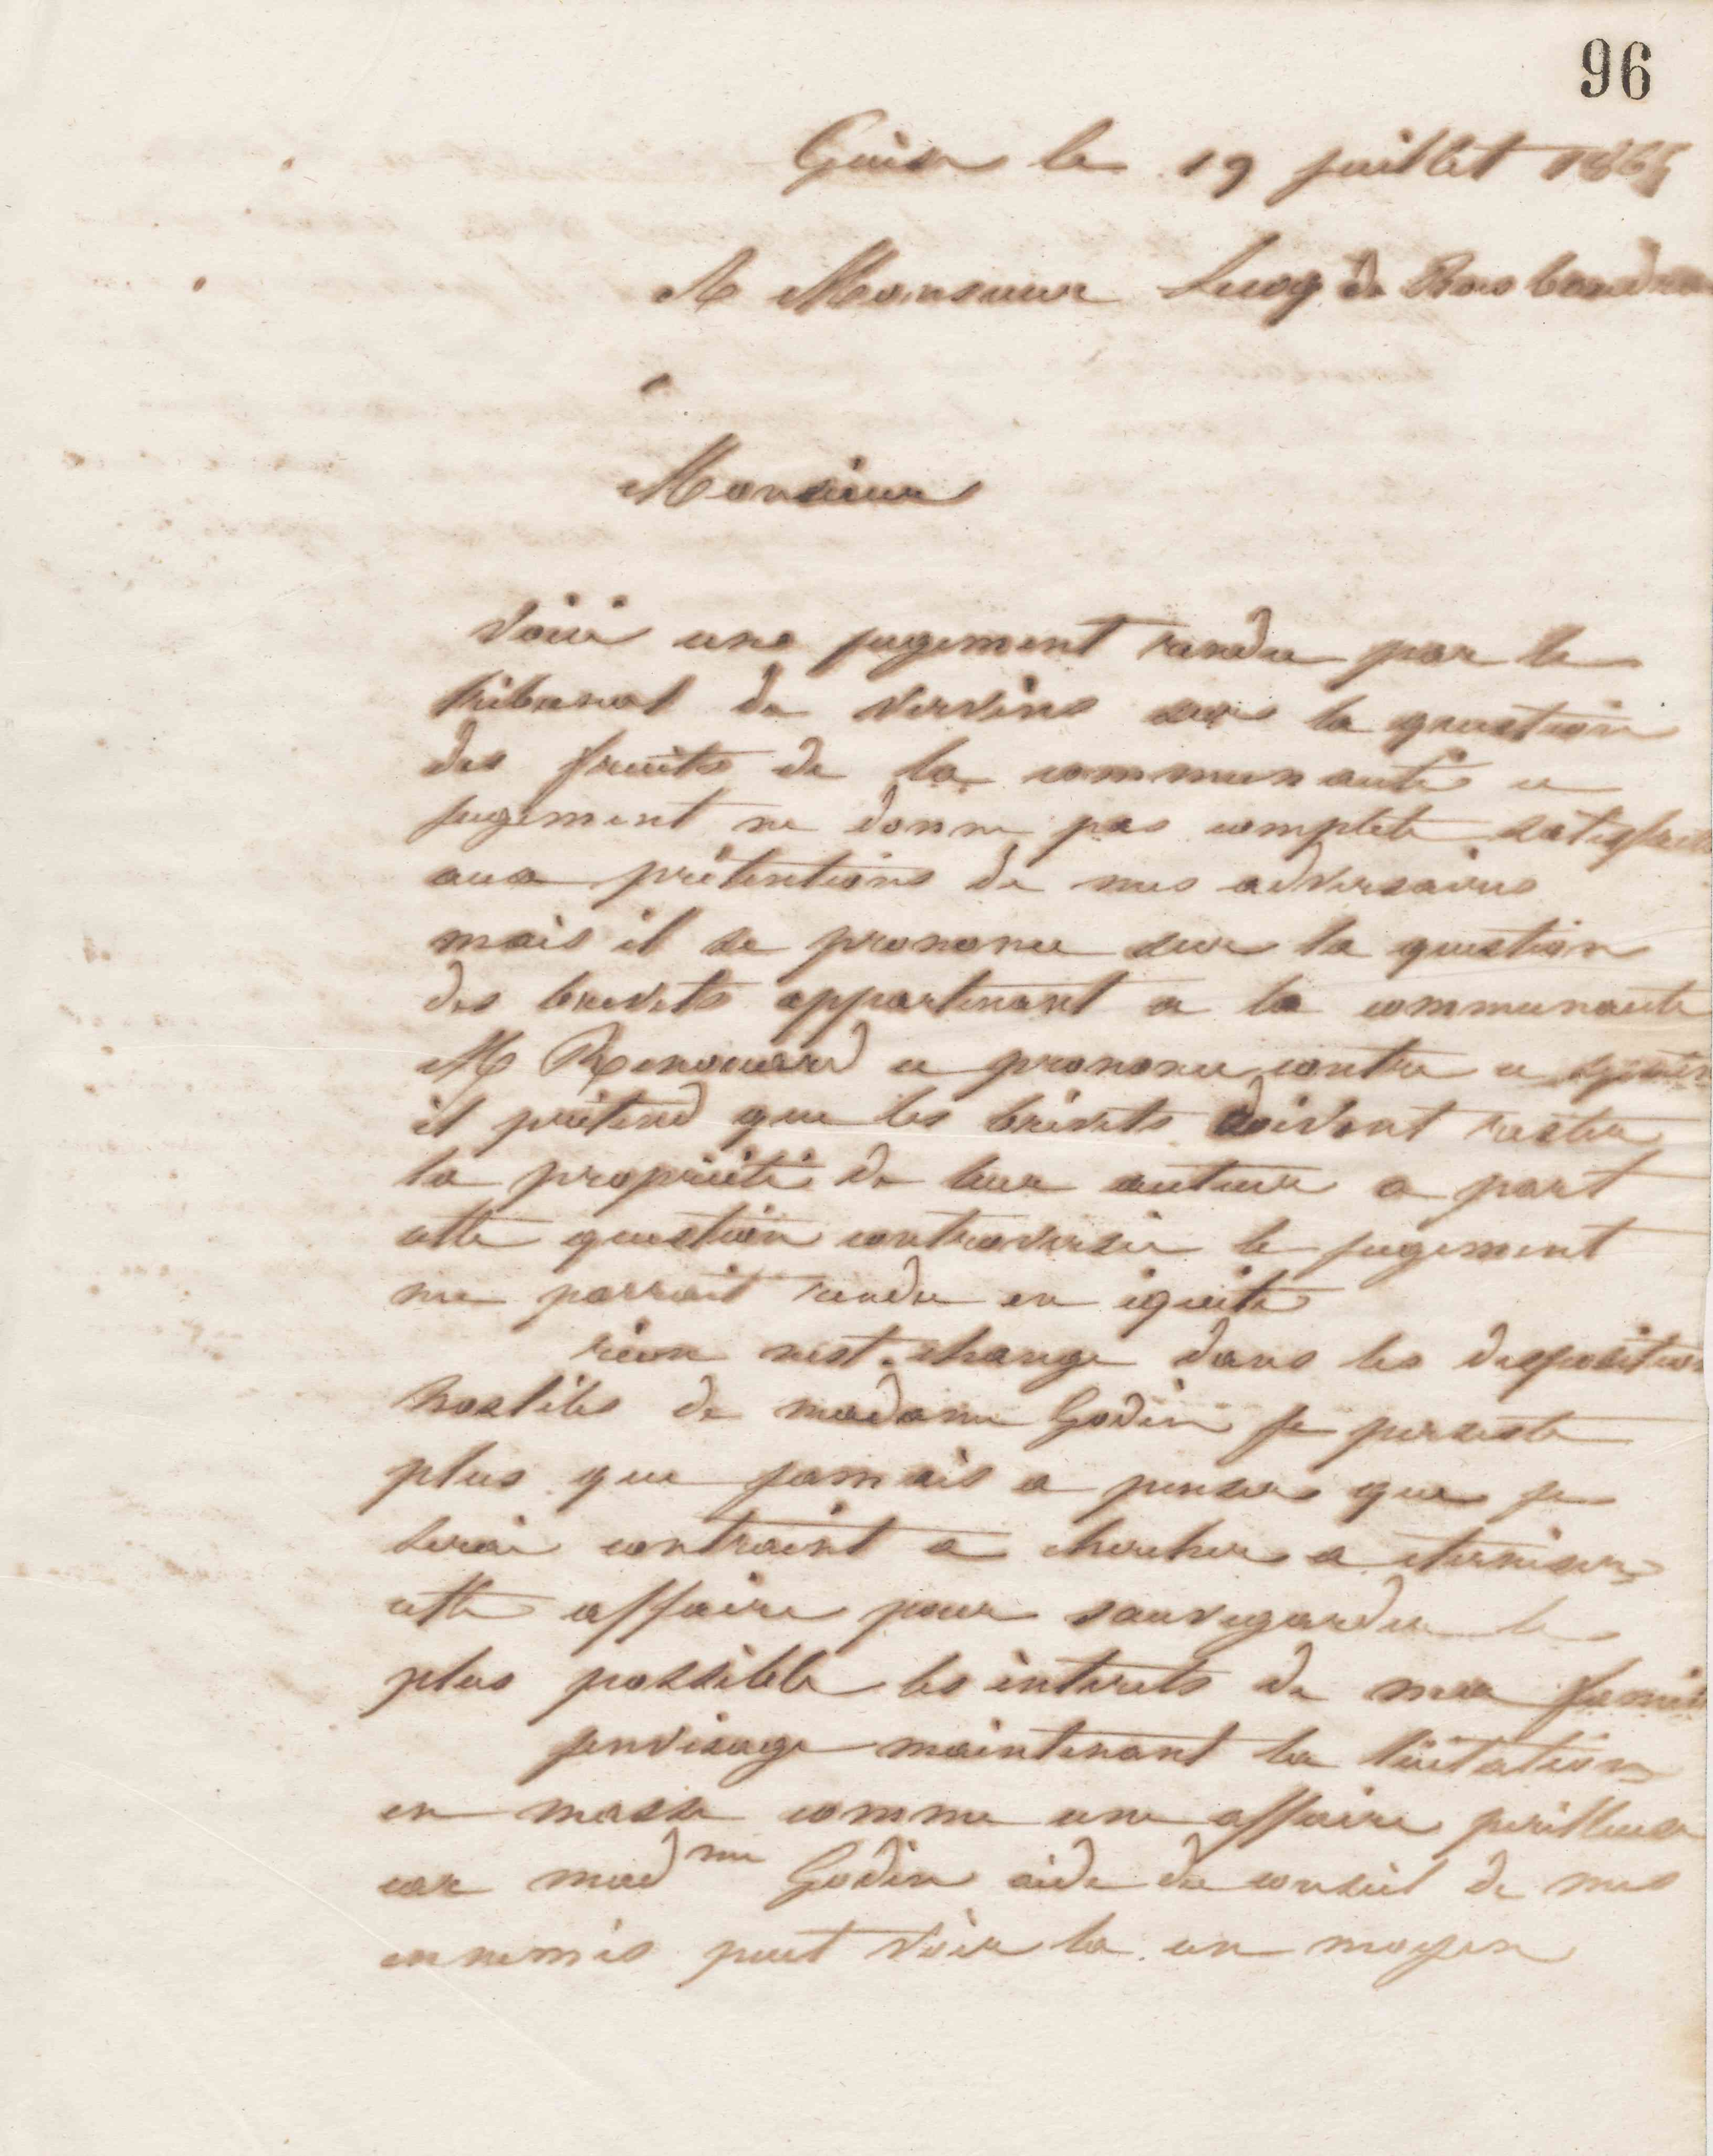 96
Guise le 19 juillet 186
A Monsieur Lucq de Bois
Monsieur
voici une jugement rendu par le
tribunal de vervins sur la question
des fruits de la communauté ce
jugement ne donne pas complete
aux prétentions de mes adversaires
mais il se prononce sur la question
des brevets appartenant a la communauté
M Renouard a prononcé contre ce
il prétend que les brevets doivent rester
la propriété de leur auteur a part
cette question controversée le jugement
me parrait rendu en équité
rien nest changé dans les disposition
hostiles de madame Godin je perseste
plus que jamais a penser que je
serai contraint a chercher a éterniser
cette affaire pour sauvegarder le
plus possible les intérets de ma
jenvisage maintenant la licitation
en masse comme une affaire perilleuse
car madme Godin aidé du conseil de mes
ennemis peut voir la un moyen